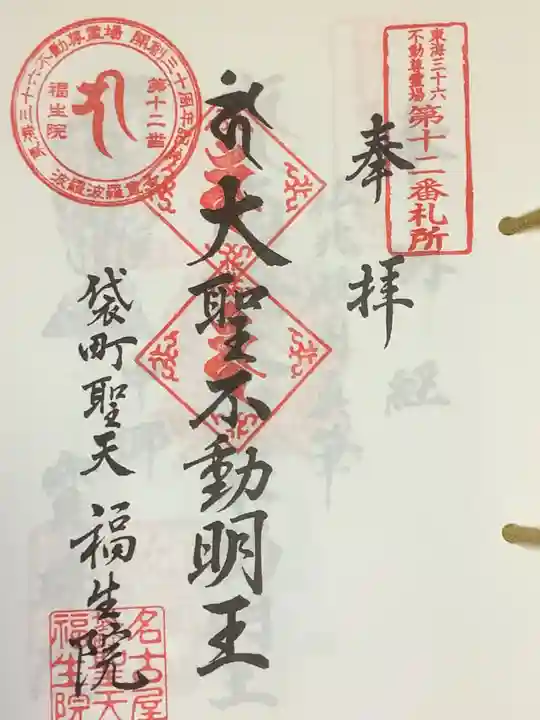 東海三十六
不動尊霊場
第十二番札所
奉拝
大聖不動明王
袋町聖天 福生院
東海三十六不動尊霊場 開創三十周年記念
第十二番
福生院
波羅波羅童子
名古屋
聖天
福生院